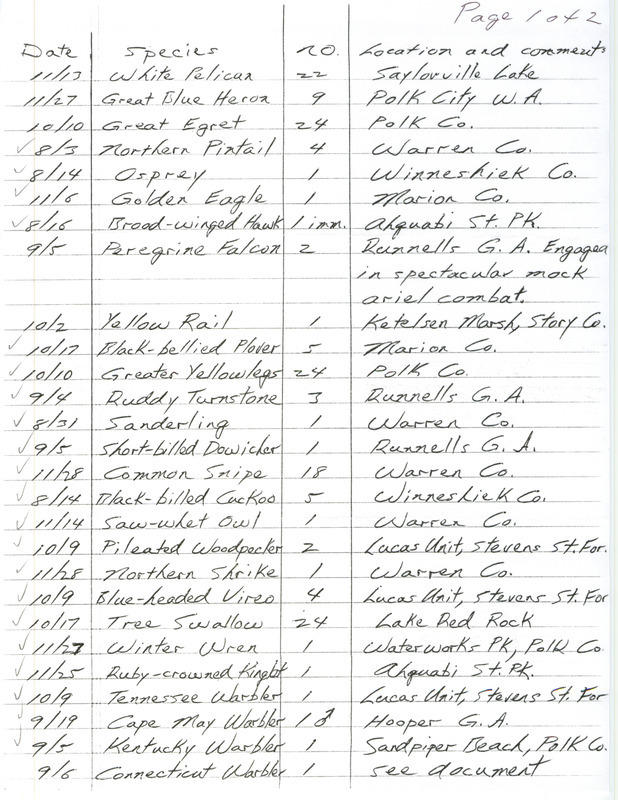 Page 1 of 2
Date Species no. Location and comments
11/13 White Pelican 22 Saylorville Lake
11/27 Great Blue Heron 9 Polk City W.A.
10/10 Great Egret 24 Polk Co.
✓ 8/3 Northern Pintail 4 Warren Co.
✓ 8/14 Osprey 1 Winneshiek Co.
✓ 11/6 Golden Eagle 1 Marion Co.
✓ 8/16 Broad-winged Hawk 1 imm. Ahquabi St. PK.
9/5 Peregrine Falcon 2 Runnells G. A. Engaged
in spectacular mock
ariel combat.
10/2 Yellow Rail 1 Ketelsen Marsh, Story Co.
✓ 10/17 Black-bellied Plover 5 Marion Co.
✓ 10/10 Greater Yellowlegs 24 Polk Co.
✓ 9/4 Ruddy Turnstone 3 Runnells G.A.
✓ 8/31 Sanderling 1 Warren Co.
✓ 9/5 Short-billed Dowicher 1 Runnells G. A.
✓ 11/28 Common Snipe 18 Warren Co.
✓ 8/14 Black-billed Cuckoo 5 Winneshiek Co.
✓ 11/14 Saw-whet Owl 1 Warren Co.
✓ 10/9 Pileated Woodpecker 2 Lucas Unit, Stevens St. For.
✓ 11/28 Northern Shrike 1 Warren Co.
✓ 10/9 Blue-headed Vireo 4 Lucas Unit, Stevens St. For
✓ 10/17 Tree Swallow 24 Lake Red Rock
✓ 11/27 Winter Wren 1 Waterworks PK, Polk Co.
✓ 11/25 Ruby-crowned Kinglet 1 Ahquabi St. PK.
✓ 10/9 Tennessee Warbler 1 Lucas Unit, Stevens St. For
✓ 9/19 Cape May Warbler 1 ♂ Hooper G. A.
✓ 9/5 Kentucky Warbler 1 Sandpiper Beach, Polk Co.
9/6 Connecticut Warbler 1 see document